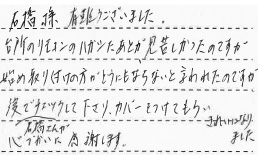 石橋様 有難うございました。
台所のリモコンのハガシたあとが見苦しかったのですが
始め取り付けの方がどうにもならないと言われたのですが
後でチェックして下さり、カバーをつけてもらい
きれいになりました
石橋さんが
心づかいに感謝します。